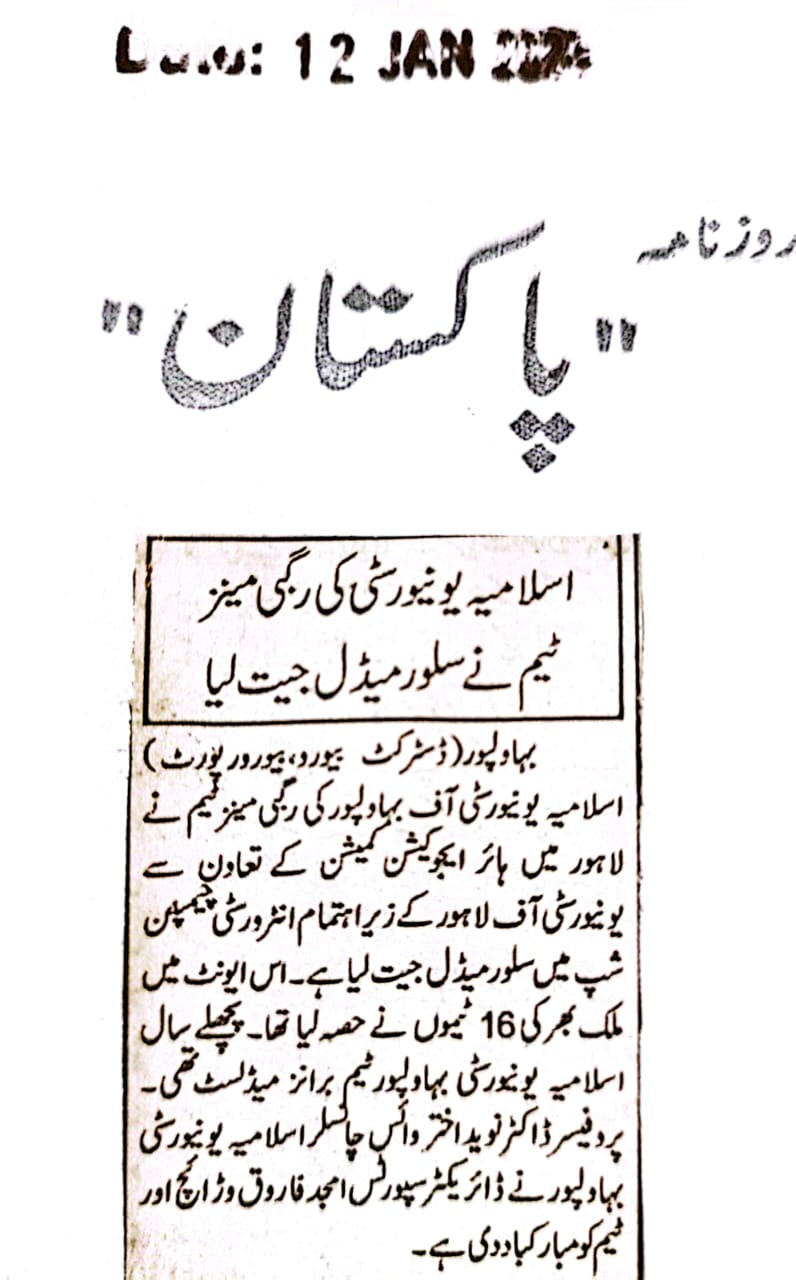 Date: 12 JAN
روزنامہ
"پاکستان"
اسلامیہ یونیورسٹی کی رگبی مینز
ٹیم نے سلور میڈل جیت لیا
بہاولپور (ڈسٹرکٹ بیورو، بیورو رپورٹ)
اسلامیہ یونیورسٹی آف بہاولپور کی رگبی مینز ٹیم نے
لاہور میں ہائر ایجوکیشن کمیشن کے تعاون سے
یونیورسٹی آف لاہور کے زیر اہتمام انٹرورسٹی چیمپئن
شپ میں سلور میڈل جیت لیا ہے۔ اس ایونٹ میں
ملک بھر کی 16 ٹیموں نے حصہ لیا تھا۔ پچھلے سال
اسلامیہ یونیورسٹی بہاولپور ٹیم برانز میڈلسٹ تھی۔
پروفیسر ڈاکٹر نوید اختر وائس چانسلر اسلامیہ یونیورسٹی
بہاولپور نے ڈائریکٹر سپورٹس امجد فاروق وڑائچ اور
ٹیم کو مبارکباد دی ہے۔